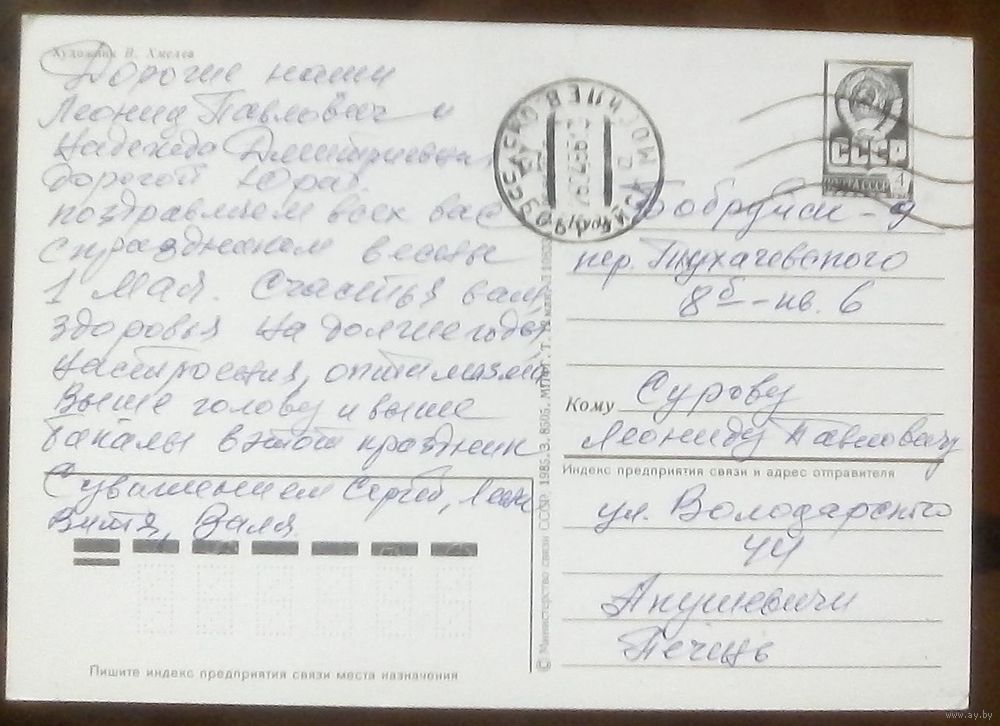 Художник В. Хмелев
Дорогие наши
Леонид Павлович и
Надежда Дмитриевна,
дорогой Юра!
поздравляем всех вас
с праздником весны
1 Мая. Счастья вам
здоровья на долгие годы
настроения, оптимизма
Выше голову и выше
бакалы в этот праздник
С уважением Сергей,
Витя, Валя.
Пишите индекс предприятия связи места назначения
© Министерство связи СССР, 1985. З. 8505. МПФГ. Т.
СССР
ПОЧТА СССР 4
Бобруйск - 9
пер. Тухачевского
8б - кв. 6
Кому Сурову
Леониду Павловичу
Индекс предприятия связи и адрес отправителя
ул. Володарского
44
Апушевичи
www.ay.by